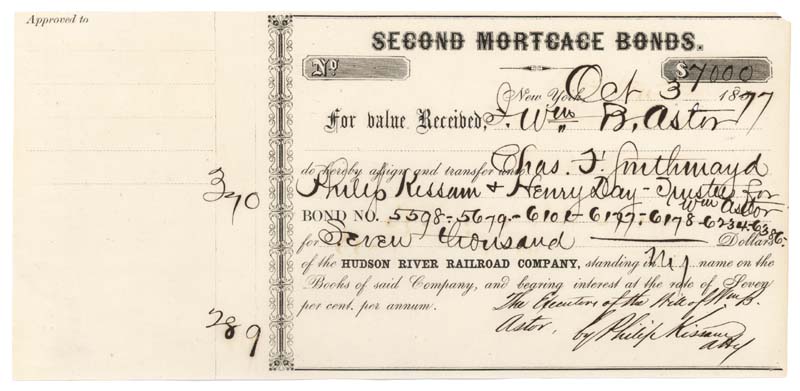 Approved to
SECOND MORTGAGE BONDS.
No.
$7000
New York Oct 3 1877
For value Received, I, Wm. B. Astor
do hereby assign and transfer unto Chas. F. Southmayd
Philip Kissam & Henry Day - Trustees for
Wm Astor
BOND NO. 5598-5679-6101-6177-6178-6234-6386-
for Seven Thousand Dollars
of the HUDSON RIVER RAILROAD COMPANY, standing in my name on the
Books of said Company, and begring interest at the rate of Seven
per cent. per annum.
The Executors of the Will of Wm. B.
Astor,
by Philip Kissam
atty
370
289